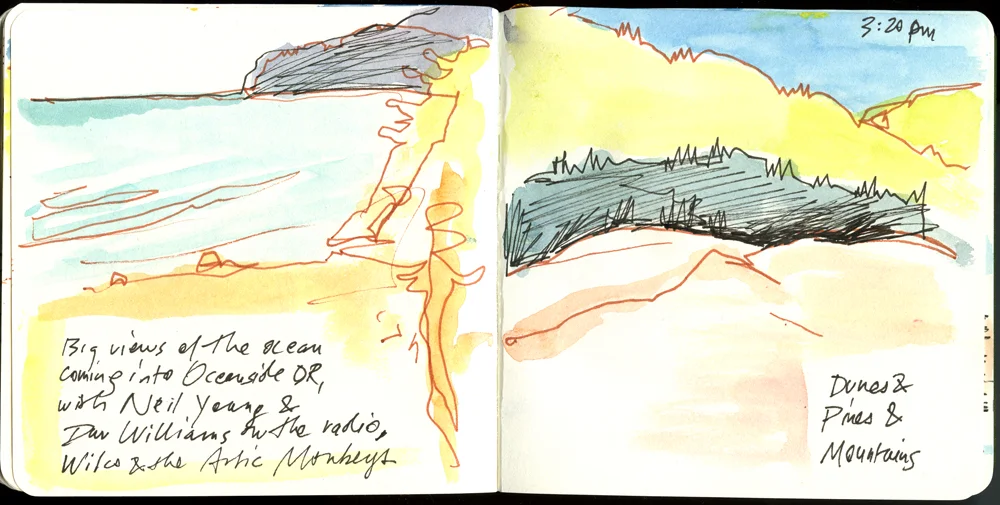 Big views of the ocean
coming into Oceanside OR,
with Neil Young &
Dar Williams on the radio,
Wilco & the Artic Monkeys
3:20 pm
Dunes &
Pines &
Mountains